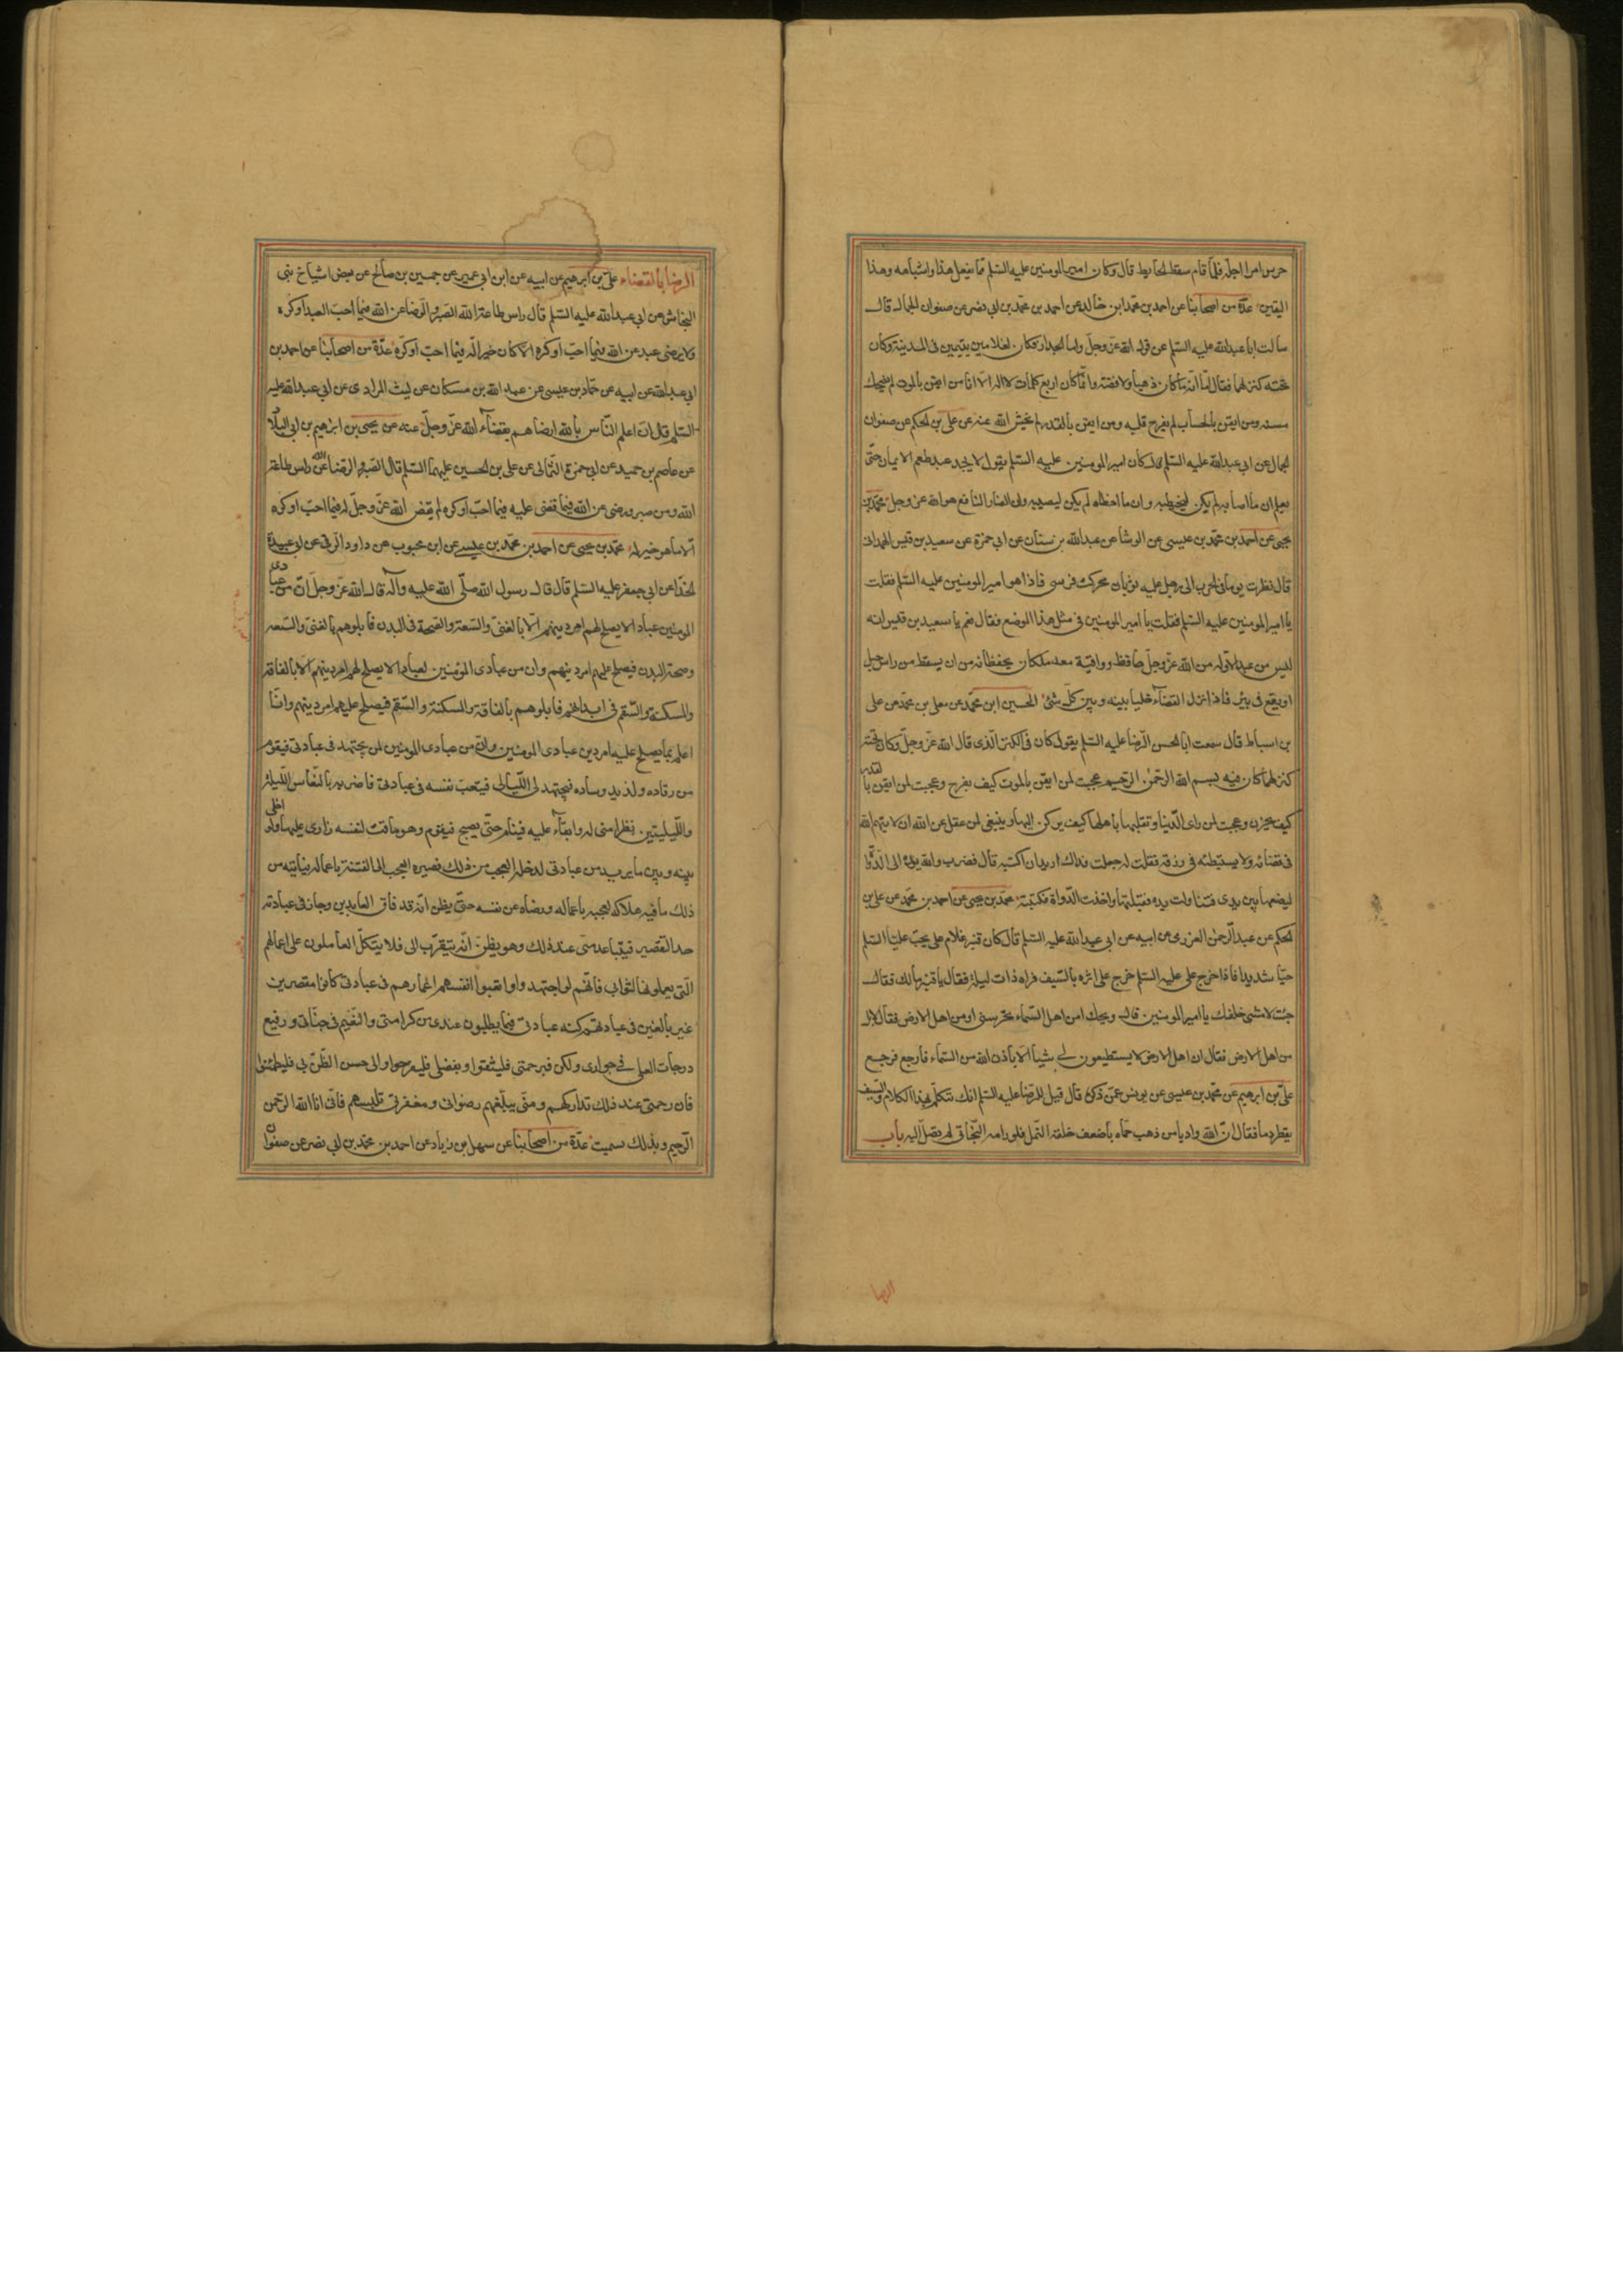 حرس امرا اجله فلما قام سقط الحايط قال وكان امير المومنين عليه السلم مما يفعل هذا واشباهه وهذا
اليقين عدة من اصحابنا عن احمد بن محمد ابن خالد عن احمد بن محمد بن ابي نصر عن صفوان الجمال قال
سالت ابا عبد الله عليه السلم عن قول الله عز وجل واما الجدار فكان لغلامين يتيمين فى المدينة وكان
تحته كنز لهما فقال اما انه ما كان ذهبا ولا فضة وانما كان اربع كلمات لا اله الا انا من ايقن بالموت لم يضحك
سنه ومن ايقن بالحساب لم يفرح قلبه ومن ايقن بالقدر لم يخش الا الله عنه عن على بن الحكم عن صفوان
الجمال عن ابى عبد الله عليه السلم قال كان امير المومنين عليه السلم يقول لا يجد عبد طعم الايمان حتى
يعلم ان ما اصابه لم يكن ليخطيه وان ما اخطاه لم يكن ليصيبه وان الضار النافع هو الله عز وجل محمد بن
يحيى عن احمد بن محمد بن عيسى عن الوشا عن عبد الله بن سنان عن ابى حمزة عن سعيد بن قيس الهمدانى
قال نظرت يوما فى الحرب الى رجل عليه ثوبان فحركت فرسى فاذا هو امير المومنين عليه السلم فقلت
يا امير المومنين عليه السلم فقلت يا امير المومنين فى مثل هذا الموضع فقال نعم يا سعيد بن قيس انه
ليس من عبد الا وله من الله عز وجل حافظ وواقية معه ملكان يحفظانه من ان يسقط من راس جبل
او يقع فى بئر فاذا نزل القضاء خليا بينه وبين كل شئ الحسين ابن محمد عن معلى بن محمد عن على
بن اسباط قال سمعت ابا الحسن الرضا عليه السلم يقول كان فى الكنز الذى قال الله عز وجل وكان تحته
كنز لهما كان فيه بسم الله الرحمن الرحيم عجبت لمن ايقن بالموت كيف يفرح وعجبت لمن ايقن بالقدر
كيف يحزن وعجبت لمن راى الدنيا وتقلبها باهلها كيف يركن اليها وينبغى لمن عقل عن الله ان لا يتهم الله
فى قضائه ولا يستبطئه فى رزقه فقلت له جعلت فداك اريد ان اكتبه قال فضرب والله يده الى الدوا
ليضعها بين يدى فتناولت يده فقبلتها واخذت الدواة فكتبته محمد بن يحيى عن احمد بن محمد عن على بن
الحكم عن عبد الرحمن العزرمى عن ابيه عن ابى عبد الله عليه السلم قال كان قنبر غلام على يحب عليا عليه السلم
حبا شديدا فاذا خرج على عليه السلم خرج على اثره بالسيف فراه ذات ليلة فقال يا قنبر ما لك فقال
جئت لامشى خلفك يا امير المومنين قال ويحك امن اهل السماء تحرسنى او من اهل الارض فقال لا بل
من اهل الارض فقال ان اهل الارض لا يستطيعون لى شيئا الا باذن الله من السماء فارجع فرجع
على بن ابرهيم عن محمد بن عيسى عن يونس عمن ذكره قال قيل للرضا عليه السلم انك تتكلم بهذا الكلام والسيف
يقطر دما فقال ان لله واديا من ذهب حماه باضعف خلقه النمل فلو رامه البخاتى لم يصل اليه باب
الرضا بالقضاء على بن ابرهيم عن ابيه عن ابن ابى عمير عن جميل بن صالح عن بعض اشياخ بنى
النجاشى عن ابى عبد الله عليه السلم قال راس طاعة الله الصبر والرضا عن الله فيما احب العبد او كره
ولا يرضى عبد عن الله فيما احب او كره الا كان خيرا له فيما احب او كره عدة من اصحابنا عن احمد بن
ابى عبد الله عن ابيه عن حماد بن عيسى عن عبد الله بن مسكان عن ليث المرادى عن ابى عبد الله عليه
السلم قال ان اعلم الناس بالله ارضاهم بقضاء الله عز وجل عنه عن يحيى بن ابرهيم بن ابى البلاد
عن عاصم بن حميد عن ابى حمزة الثمالى عن على بن الحسين عليهما السلم قال الصبر والرضا عن الله راس طاعة
الله ومن صبر ورضى عن الله فيما قضى عليه فيما احب او كره لم يقض الله عز وجل له فيما احب او كره
الا ما هو خير له محمد بن يحيى عن احمد بن محمد بن عيسى عن ابن محبوب عن داود الرقى عن ابى عبيدة
الحذا عن ابى جعفر عليه السلم قال قال رسول الله صلى الله عليه وآله قال الله عز وجل ان من عبادى
المومنين عبادا لا يصلح لهم امر دينهم الا بالغنى والسعة والصحة فى البدن فابلوهم بالغنى والسعه
وصحة البدن فيصلح عليهم امر دينهم وان من عبادى المؤمنين لعبادا لا يصلح لهم امر دينهم الا بالفاقة
والمسكنة والسقم فى ابدانهم فابلوهم بالفاقة والمسكنة والسقم فيصلح عليهم امر دينهم وانا
اعلم بما يصلح عليه امر دين عبادى المومنين وان من عبادى المومنين لمن يجتهد فى عبادتى فيقوم
من رقاده ولذيذ وساده فيجتهد لى الليالى فيتعب نفسه فى عبادتى فاضربه بالنعاس الليلة
والليلتين نظرا منى له وابقاء عليه فينام حتى يصبح فيقوم وهو ماقت لنفسه زارى عليها ولو اخلى
بينه وبين ما يريد من عبادتى لدخله العجب من ذلك فصيره العجب الى الفتنة باعماله فياتيه من
ذلك ما فيه هلاكه لعجبه باعماله ورضاه عن نفسه حتى يظن انه قد فاق العابدين وجاز فى عبادته
حد التقصير فيتباعد منى عند ذلك وهو يظن انه يتقرب الى فلا يتكل العاملون على اعمالهم
التى يعملونها لثوابى فانهم لو اجتهدوا واتعبوا انفسهم اعمارهم فى عبادتى كانوا مقصرين
غير بالغين فى عبادتهم كنه عبادتى فيما يطلبون عندى من كرامتى والنعيم فى جناتى ورفيع
درجات العلى فى جوارى ولكن فبرحمتى فليثقوا وبفضلى فليرجوا والى حسن الظن بى فليطمئنوا
فان رحمتى عند ذلك تداركهم ومنى يبلغهم رضوانى ومغفرتى تلبسهم فانى انا الله الرحمن
الرحيم وبذلك سميت عدة من اصحابنا عن سهل بن زياد عن احمد بن محمد بن ابى نصر عن صفوان